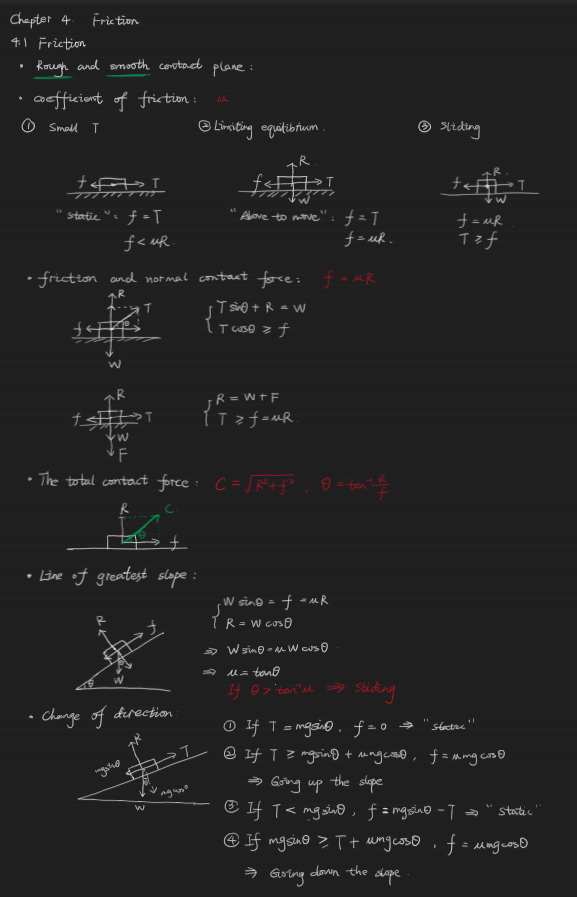 Chapter 4. Friction
4.1 Friction
• Rough and smooth contact plane :
• coefficient of friction : μ
① Small T ② Limiting equilibrium. ③ Sliding
f T
R f T W
R f T W
"Static" : f = T
f < μR.
"Above to move" : f = T
f = μR.
f = μR
T ≥ f
• friction and normal contact force : f = μR
R T f θ W
{ T sinθ + R = W
T cosθ ≥ f
R f T W F
{ R = W + F
T ≥ f = μR.
• The total contact force : C = √R²+f² , θ = tan⁻¹ R/f
R C θ f
• Line of greatest slope :
R f θ W θ
{ W sinθ = f = μR
R = W cosθ
⇒ W sinθ = μ W cosθ
⇒ μ = tanθ
If θ > tan⁻¹ μ ⇒ Sliding
• Change of direction:
R T mgsinθ θ mgcosθ W
① If T = mgsinθ , f = 0 ⇒ "static"
② If T ≥ mgsinθ + μmgcosθ , f = μmgcosθ
⇒ Going up the slope
③ If T < mgsinθ , f = mgsinθ - T ⇒ "static"
④ If mgsinθ ≥ T + μmgcosθ , f = μmgcosθ
⇒ Going down the slope .